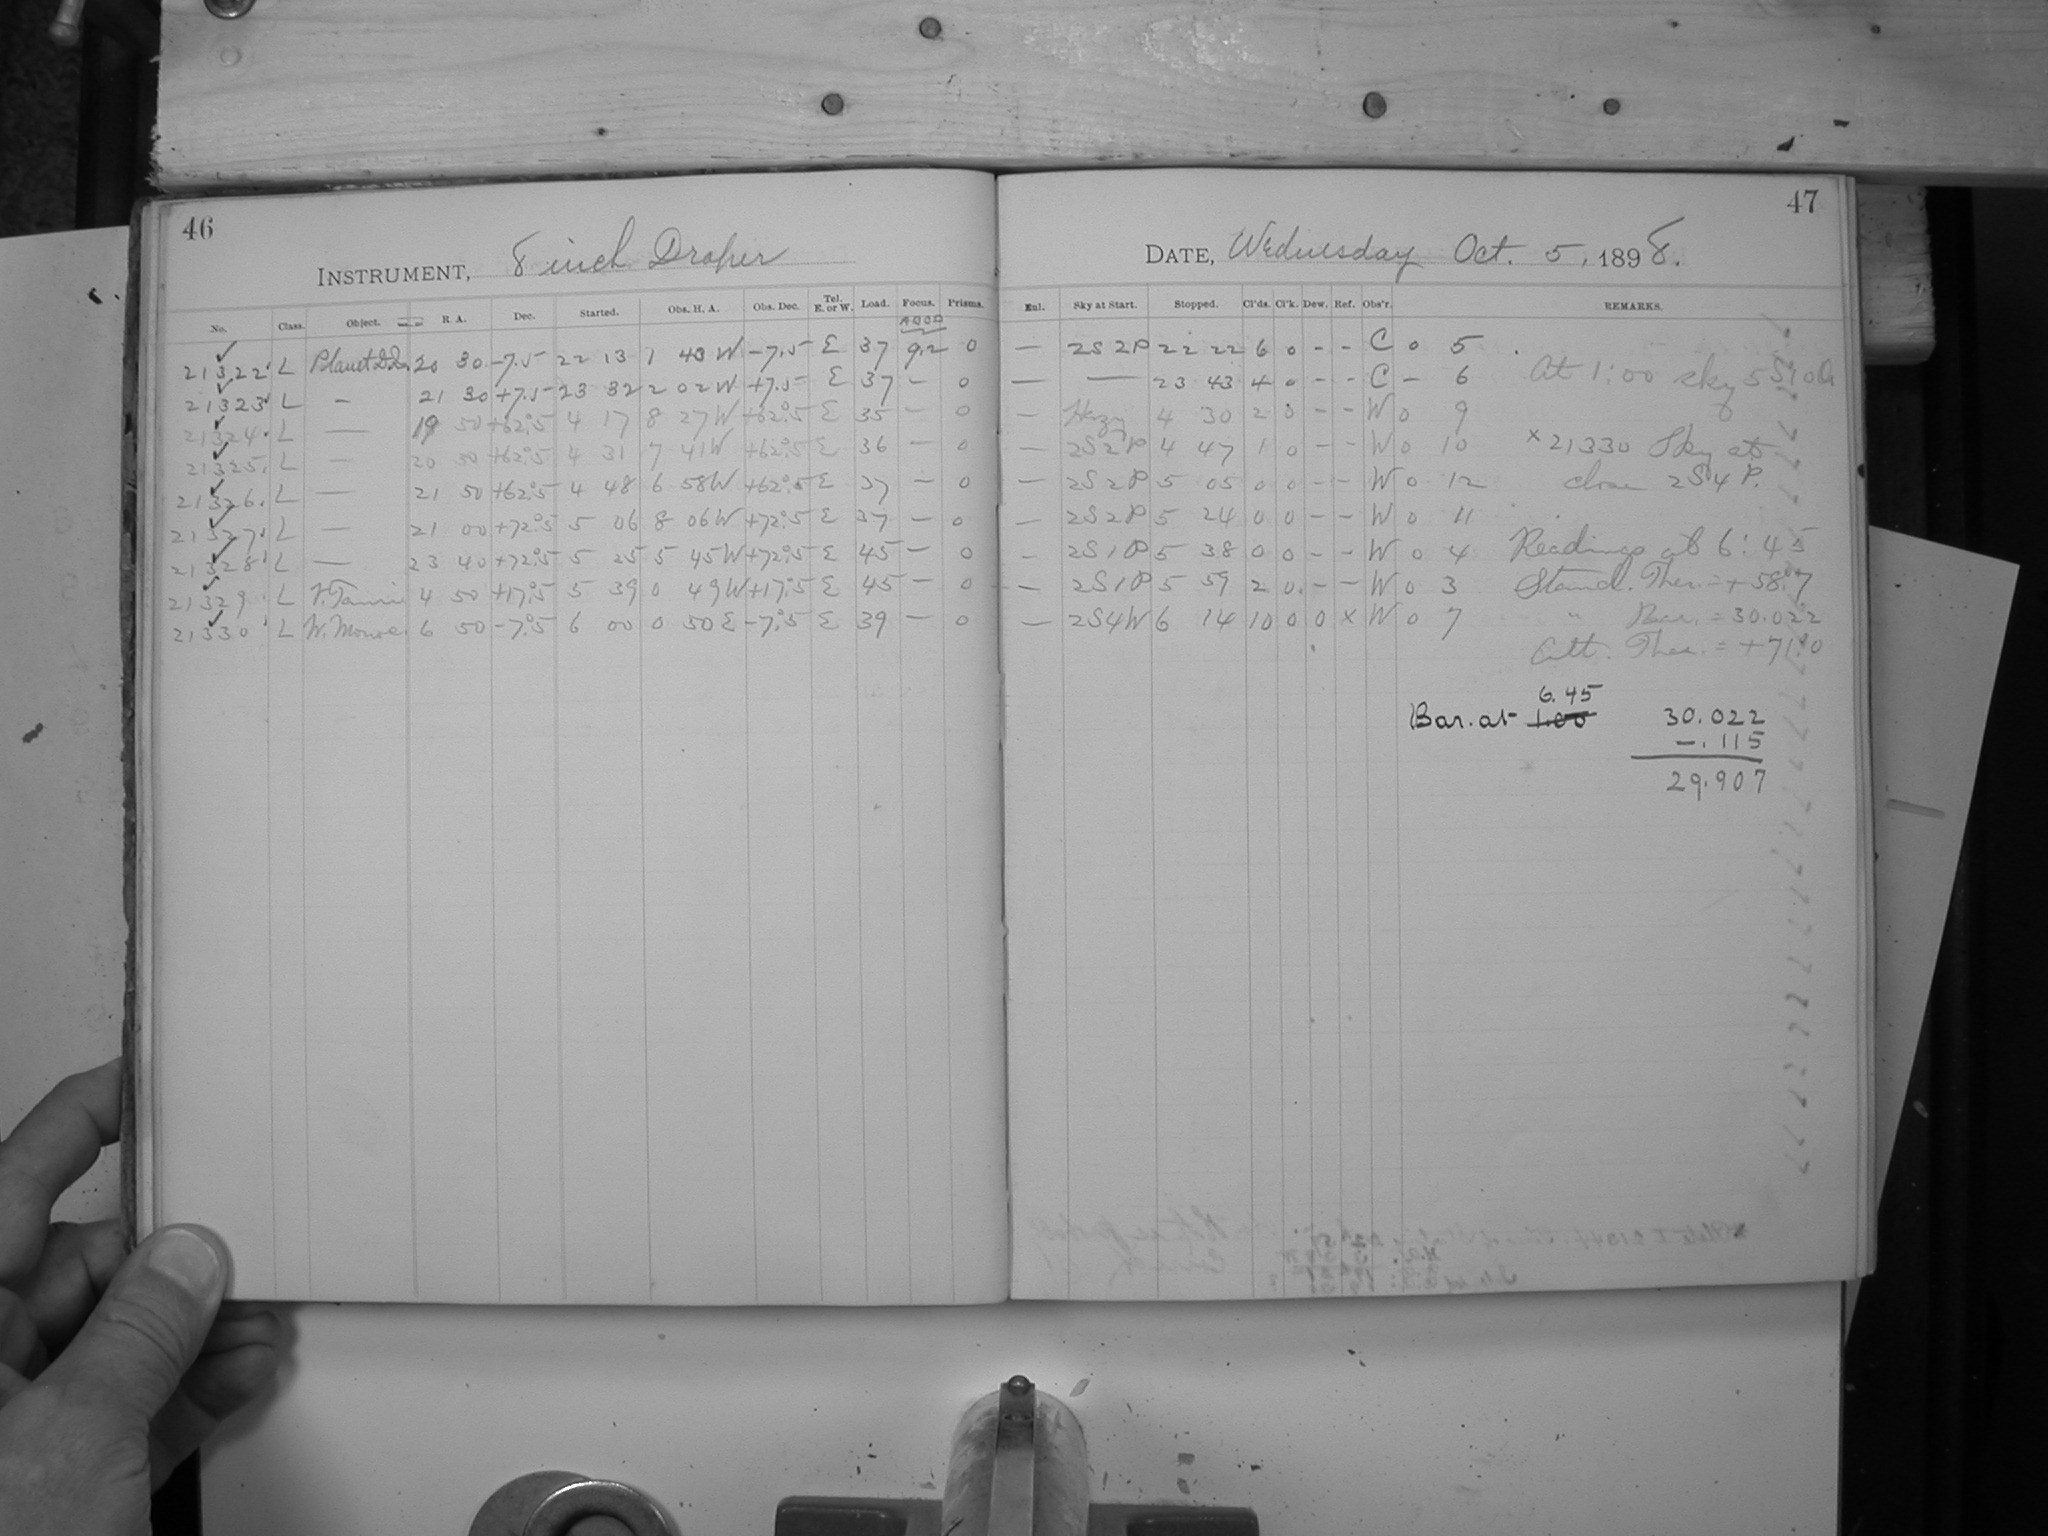 46
INSTRUMENT, 8 inch Draper
No. Class. Object. R. A. Dec. Started. Obs. H. A. Obs. Dec. Tel. E. or W. Load. Focus. Prisms.
21322 L Planet 20 30 -7.5 22 13 1 43 W -7.5 E 37 9.2 0
21323 L - 21 30 +7.5 23 32 2 02 W +7.5 E 37 - 0
21324 L — 19 50 +62°.5 4 17 8 27 W +62°.5 E 35 - 0
21325 L - 20 50 +62°.5 4 31 7 41 W +62°.5 E 36 - 0
21326 L — 21 50 +62°.5 4 48 6 58 W +62°.5 E 37 - 0
21327 L — 21 00 +72°.5 5 06 8 06 W +72°.5 E 37 - 0
21328 L — 23 40 +72°.5 5 25 5 45 W +72°.5 E 45 - 0
21329 L 4 50 +17°.5 5 39 0 49 W +17°.5 E 45 - 0
21330 L 6 50 -7°.5 6 00 0 50 E -7°.5 E 39 - 0
47
DATE, Wednesday Oct. 5, 1898.
Enl. Sky at Start. Stopped. Cl'ds. Cl'k. Dew. Ref. Obs'r. REMARKS.
— 2S 2P 22 22 6 0 - - C 0 5
— — 23 43 4 0 - - C - 6
— Hazy 4 30 2 0 - - W 0 9
— 2S2P 4 47 1 0 - - W 0 10
— 2S2P 5 05 0 0 - - W 0 12
— 2S2P 5 24 0 0 - - W 0 11
— 2S1P 5 38 0 0 - - W 0 4
— 2S1P 5 59 2 0 - - W 0 3
— 2S4W 6 14 10 0 0 x W 0 7
At 1:00 sky
x 21330 Sky at
close 2S4P.
Readings at 6:45
Stand. Ther. = +58°.7
" Bar. = 30.022
Att. Ther. = +71°.0
6.45
Bar. at 1.00 30.022
-.115
29.907